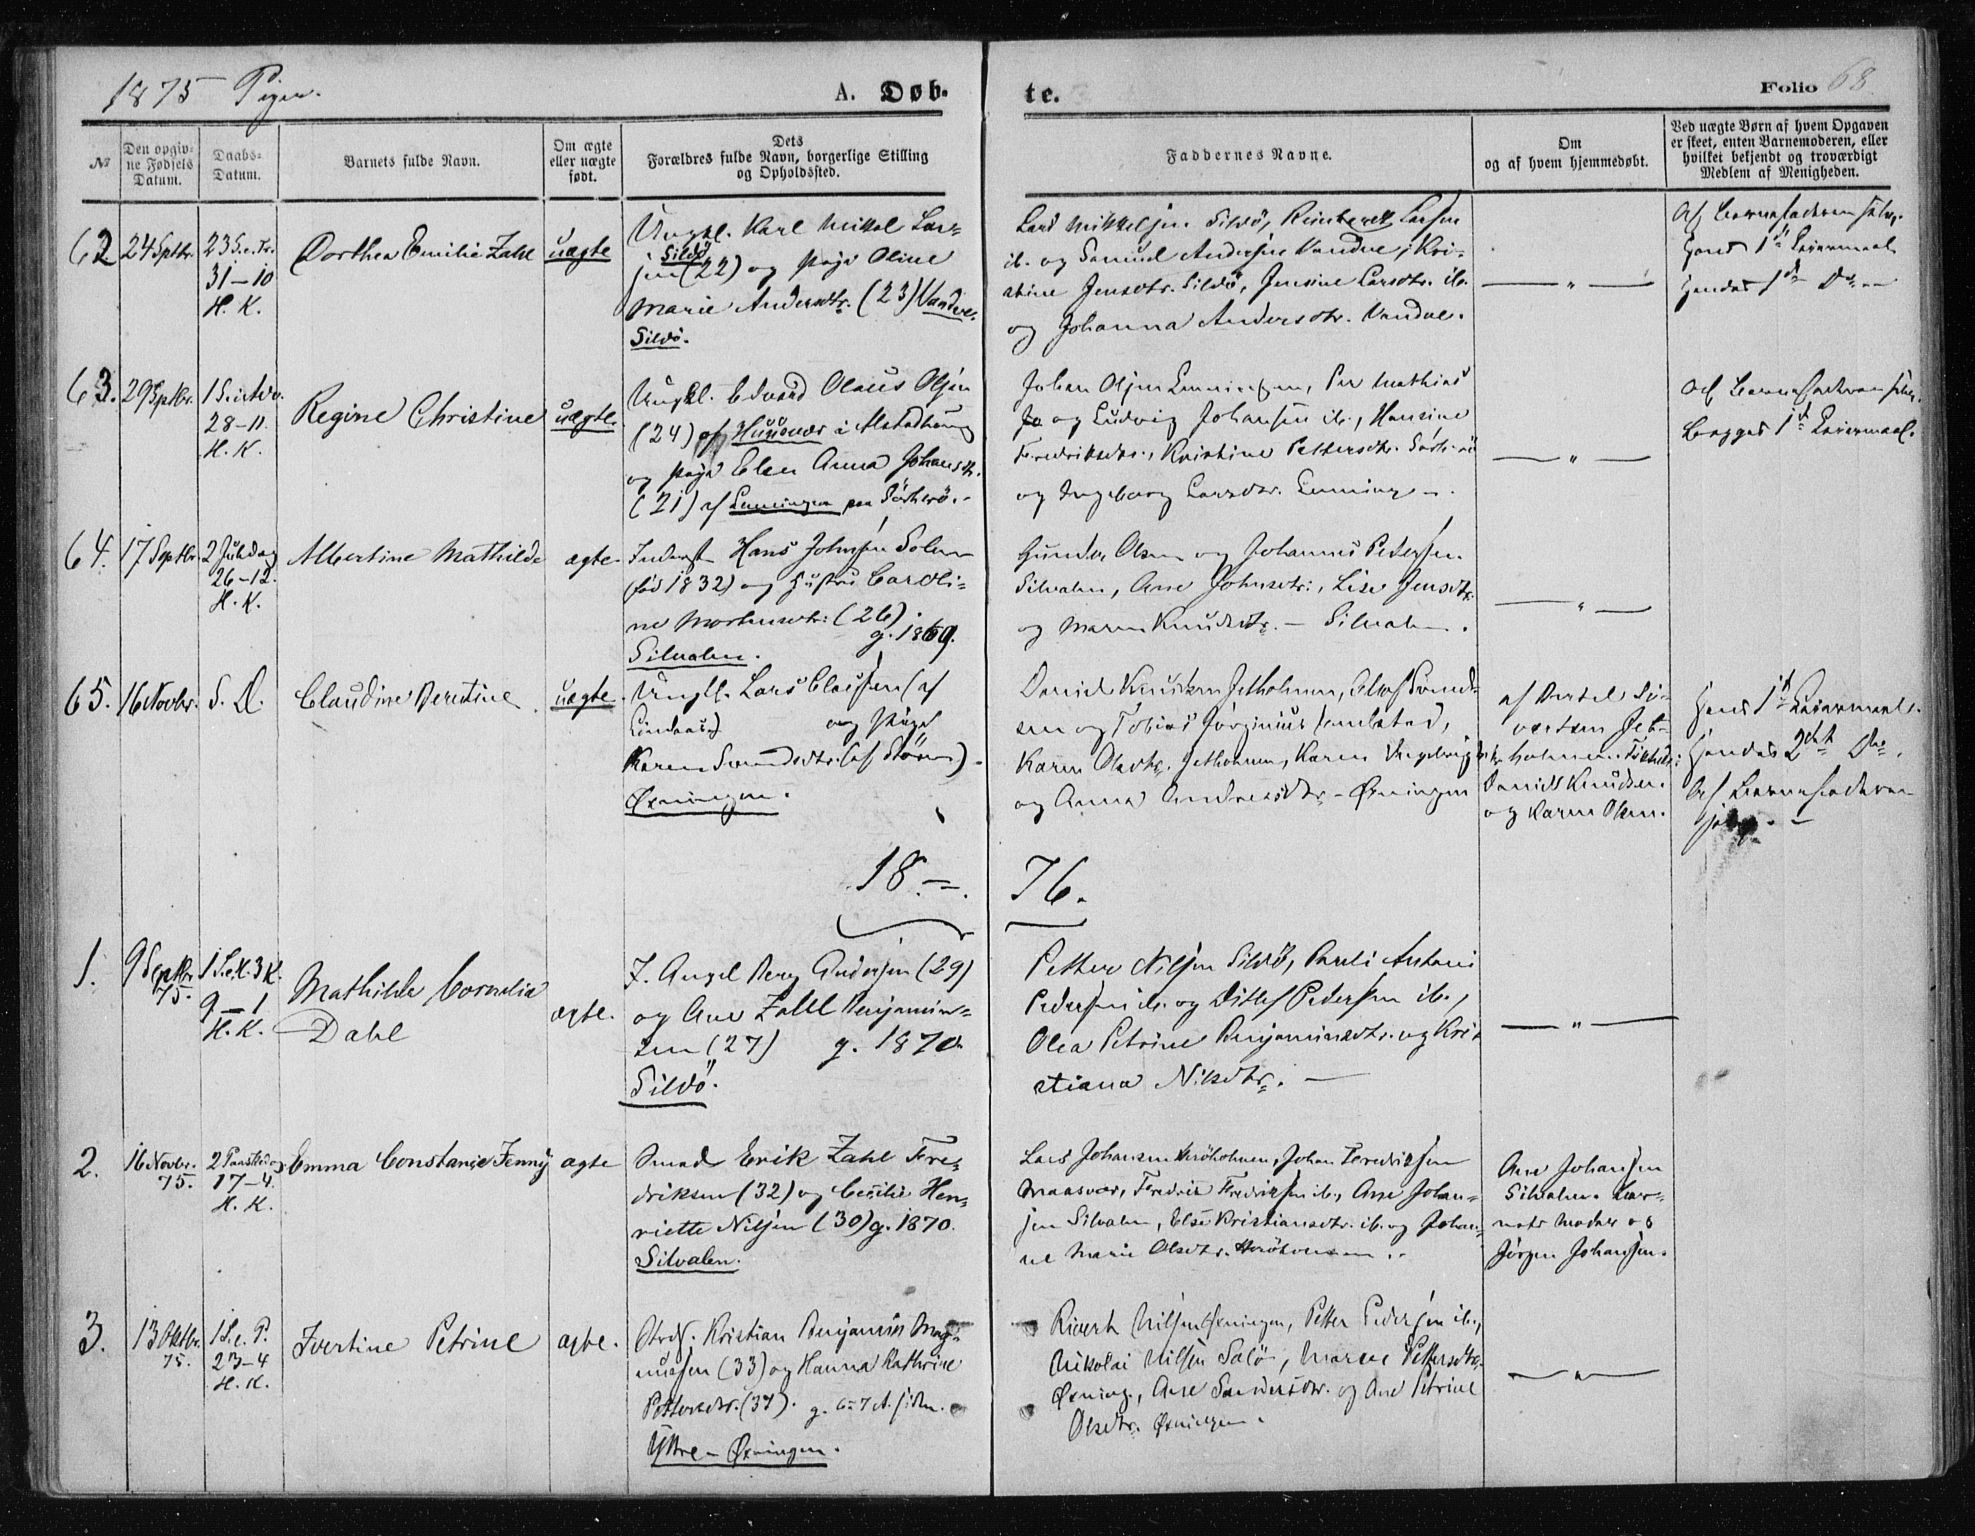 1875 Piger.
A. Døb-
te.
Folio 68.
№
Den opgiv-
ne Fødsels
Datum.
Daabs-
Datum.
Barnets fulde Navn.
Om ægte
eller uægte
født.
Dets
Forældres fulde Navn, borgerlige Stilling
og Opholdssted.
Faddernes Navne.
Om
og af hvem hjemmedøbt.
Ved uægte Børn af hvem Opgaven
er skeet, enten Barnemoderen, eller
hvilket bekjendt og troværdigt
Medlem af Menigheden.
62
24 Septbr.
23 S. e. Tr.
31-10
H. K.
Dorthea Emilie Zahl
uægte
Ungkl. Karl Mikal Lar-
Sildö
sen (22) og Pige Oline
Marie Andersdtr. (23) Vandve.
Sildö.
Lars Mikkelsen Sildö, Larsen
ib. og Samuel Andersen Vandve, Kri-
stine Jensdtr. Sildö, Jensine Larsdtr. ib.
og Johanna Andersdtr. Vandve.
— " —
Af Barnefaderen selv.
Hans 1ste Leiermaal
Hendes 1ste Do
63.
29 Septbr.
1 S. i Adv.
28-11.
H. K.
Regine Christine
uægte.
Ungkl. Edvard Olaus Olsen
(24) af Husvær i Alstadhoug
og Pige Elen Anna Johansdtr.
(21) af Lenningen paa Sörherö.
Johan Olsen Lenningen, Per Mathias
Jo og Ludvig Johansen ib., Hansine
Fredriksdtr., Kristine Pettersdtr. Sörherö
og Ingeborg Larsdtr. Lenning.
— " —
Af Barnefaderen selv.
Begges 1ste Leiermaal.
64.
17 Septbr.
2 Juledag
26-12.
H. K.
Albertine Mathilde
ægte.
Inderst Hans Johnsen Solem
(fød 1832) og Hustru Caroli-
ne Mortensdtr: (26).
g. 1869.
Silvalen.
Gunder Olsen og Johannes Pedersen.
Silvalen, Ane Johnsdtr:, Lise Jensdtr.
og Maren Knudsdtr. - Silvalen.
— " —
65.
16 Novbr.
S. D.
Claudine Berntine
uægte.
Ungkl. Lars Claussen (af
Lindaas) og Pige
Karen Svendsdtr. (af Stören).
Øxningen.
Daniel Knudsen Jetholmen, Olaf Svend-
sen og Tobias Jörginius,
Karen Olsdtr. Jetholmen, Karen
og Anna Andreasdtr - Øxningen
af Bertel Sy-
vertsen Jet-
holmen. Tilstede:
Daniel Knudsen
og Karen Olsen.
Hans 1ste Leiermaal.
Hendes 2det Do.
Af Barnefaderen
selv. -
18 -
76.
1.
9 Septbr.
75.
1 S. e. H. 3 K.
9-1
H. K.
Mathilde Cornelia
Dahl
ægte.
J. Angel Berg Andersen (29)
og Ane Zahl Benjamin-
sen (27) g. 1870.
Sildö.
Petter Nilsen Sildö, Pauli Antoni
Pedersen ib. og Ditlef Pedersen ib.,
Olea Petrine Benjaminsdtr. og Kri-
stiana Nilsdtr. —
— " —
2.
16 Novbr.
75.
2 Paaskedag
17-4.
H. K.
Emma Constanse Jenny
ægte
Smed Erik Zahl Fre-
driksen (32) og Cecilie Hen-
riette Nilsen (30) g. 1870.
Silvalen.
Lars Johansen Heröholmen, Johan Fredriksen
Maasvær, Fredrik Fredriksen ib., Ane Johan-
sen Silvalen, Else Kristiansdtr. ib. og Johan-
ne Marie Olsdtr. Heröholmen.
Ane Johansen
Silvalen. Bar-
nets Moder og
Jörgen Johansen.
3.
13 Oktbr.
75.
1 S. e. P.
23-4
H. K.
Ivertine Petrine
ægte.
Strds. Kristian Benjamin Mag-
nussen (33) og Hanna Kathrine
Pettersdtr. (37). g. 6-7 A. siden.
Yttre - Øxningen.
Rivert Nilsen Øxningen, Petter Pedersen ib.,
Nikolai Nilsen Salö, Maren Pettersdtr.
Øxning., Ane Sandersdtr. og Ane Petrine
Olsdtr. Øxningen.
— " —